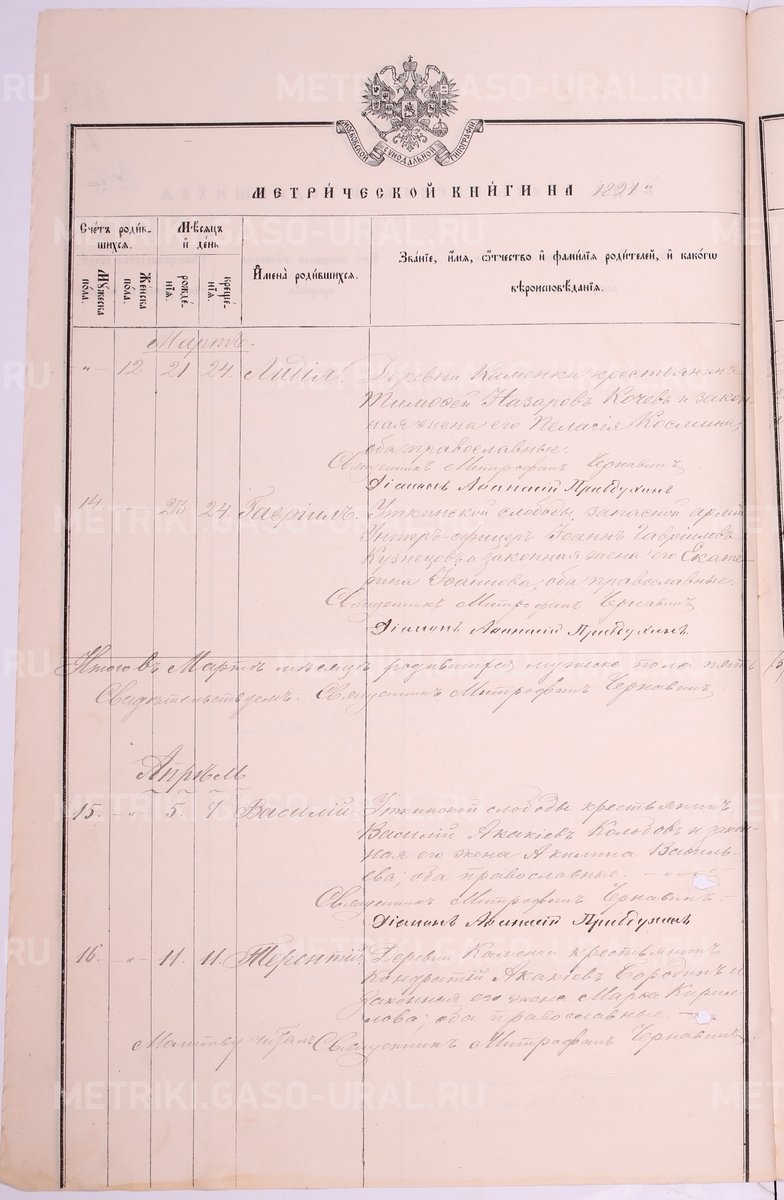 МОСКОВСКОЙ СѴНОДАЛЬНОЙ ТИПОГРАФІИ
МЕТРИ́ЧЕСКОЙ КНИ́ГИ НА 1891 й
Сче́тъ роди́вшихся.
Мꙋ́жеска по́ла.
Же́нска по́ла.
Мѣ́сяцъ и҆ де́нь
рожде́нїя.
креще́нїя.
И҆мена̀ роди́вшихся.
Зва́нїе, и҆́мя, ѻ҆́тчество и҆ фами́лїя роди́телей, и҆ како́гѡ
вѣроисповѣ́данїя.
Мартъ.
"- 12 21 24. Лидія. Деревни Каменки крестьянинъ
Тимоѳей Назаровъ Кочевъ и закон-
ная жена его Пелагія Космина,
оба православные.
Священникъ Митрофанъ Чернавинъ
Діаконъ Аѳанасій
14 -"- 23 24. Гавріилъ. Уткинской слободы запасной арміи
Унтеръ-офицеръ Іоаннъ Гавриловъ
Кузнецовъ и законная жена его Екате-
рина Іоаннова, оба православные.
Священникъ Митрофанъ Чернавинъ
Діаконъ Аѳанасій
Итого въ Мартѣ мѣсяцѣ родившихся мужеска пола пять
Свидѣтельствуемъ: Священникъ Митрофанъ Чернавинъ
Апрѣль
15. -"- 5 7. Василій Уткинской слободы крестьянинъ
Василій Акакіевъ Колобовъ и закон-
ная его жена Акилина Василь-
ева; оба православные.
Священникъ Митрофанъ Чернавинъ.
Діаконъ Аѳанасій
16. -"- 11. 11. Терентій Деревни Каменки крестьянинъ
Кондратій Акакіевъ Бородинъ и
законная его жена Марѳа Кирил-
лова; оба православные.
Молитву читалъ Священникъ Митрофанъ Чернавинъ
METRIKI.GASO-URAL.RU